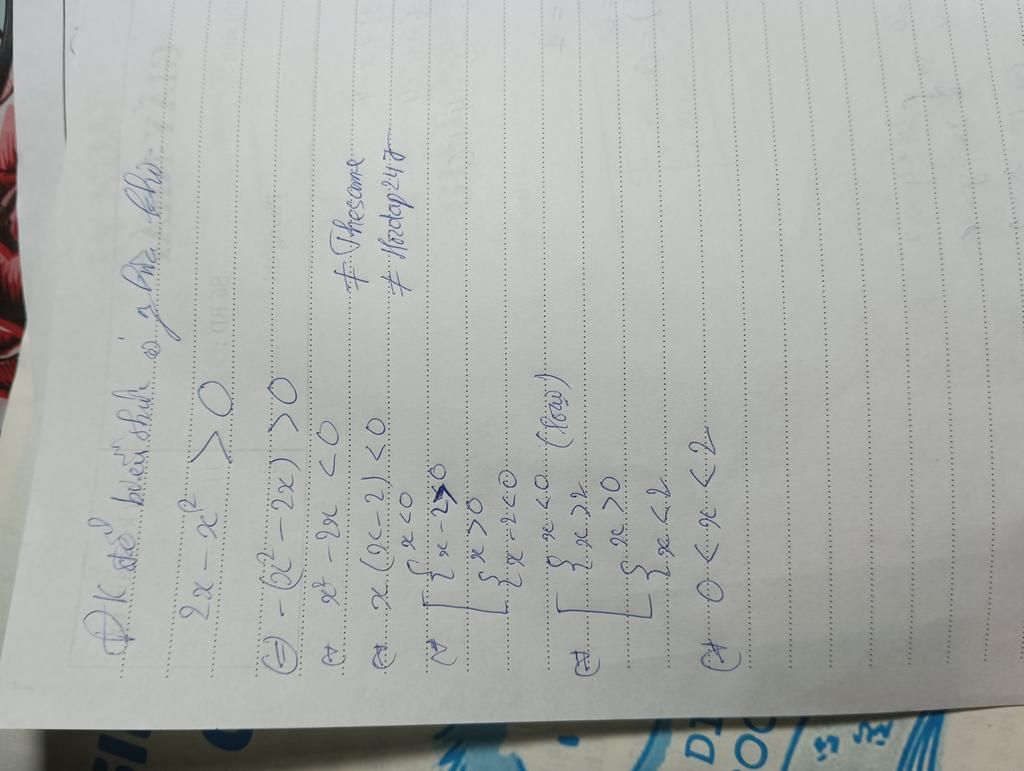 ĐK để biểu thức có nghĩa khi:
2x - x² > 0
(=) - (x² - 2x) > 0
(=) x² - 2x < 0
(=) x (x - 2) < 0
# Thesame
# Hoidap247
(=) [ { x < 0
x - 2 > 0
{ x > 0
x - 2 < 0
(=) [ { x < 0 (loại)
x > 2
{ x > 0
x < 2
(=) 0 < x < 2